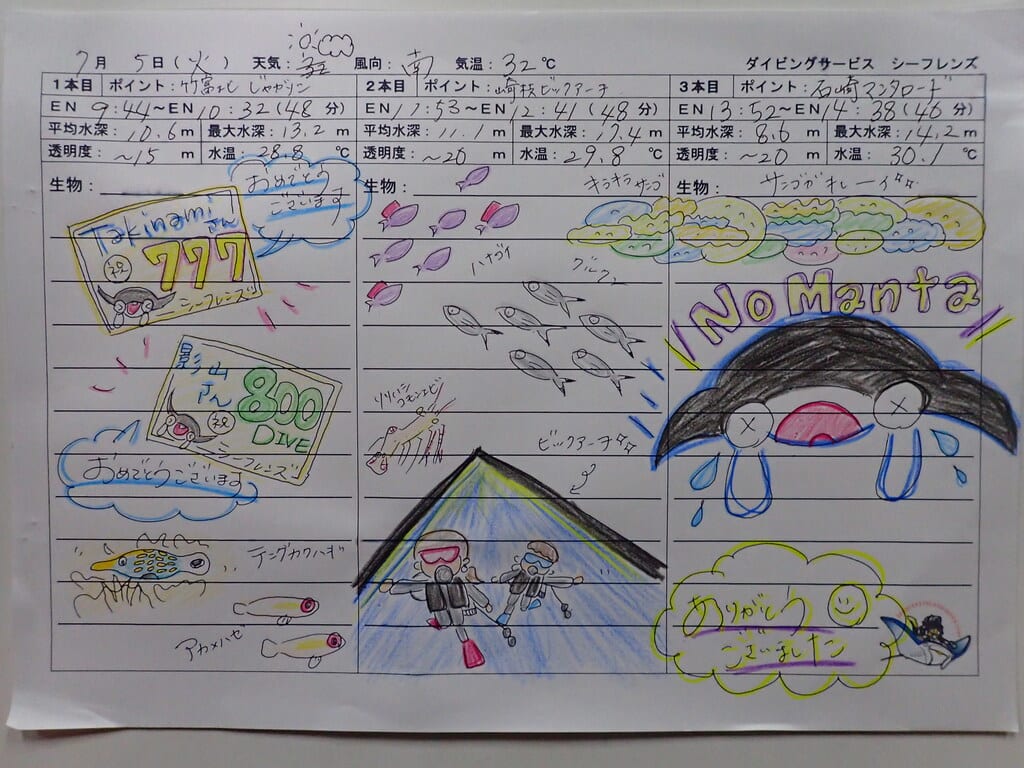 7月 5日(火) 天気: 風向: 南 気温: 32℃ ダイビングサービス シーフレンズ
1本目 ポイント: 竹富よし じゃがリン 2本目 ポイント: 崎枝ビックアーチ 3本目 ポイント: 石崎マンタロード
EN 9:44～EN 10:32(48 分) EN 11:53～EN 12:41(48 分) EN 13:52～EN 14:38(46 分)
平均水深: 10.6 m 最大水深: 13.2 m 平均水深: 11.1 m 最大水深: 17.4 m 平均水深: 8.6 m 最大水深: 14.2 m
透明度: ～15 m 水温: 28.8 ℃ 透明度: ～20 m 水温: 29.8 ℃ 透明度: ～20 m 水温: 30.1 ℃
生物:
おめでとう
ございます
Takinami
さん
777
祝
シーフレンズ
影山
さん
800
DIVE
祝
シーフレンズ
おめでとうございます
テングカワハギ
アカメハゼ
生物:
キラキラサンゴ
ハナゴイ
グルクン
コモンエビ
ビックアーチ
生物: サンゴがキレーイ
No Manta
ありがとう
ございました